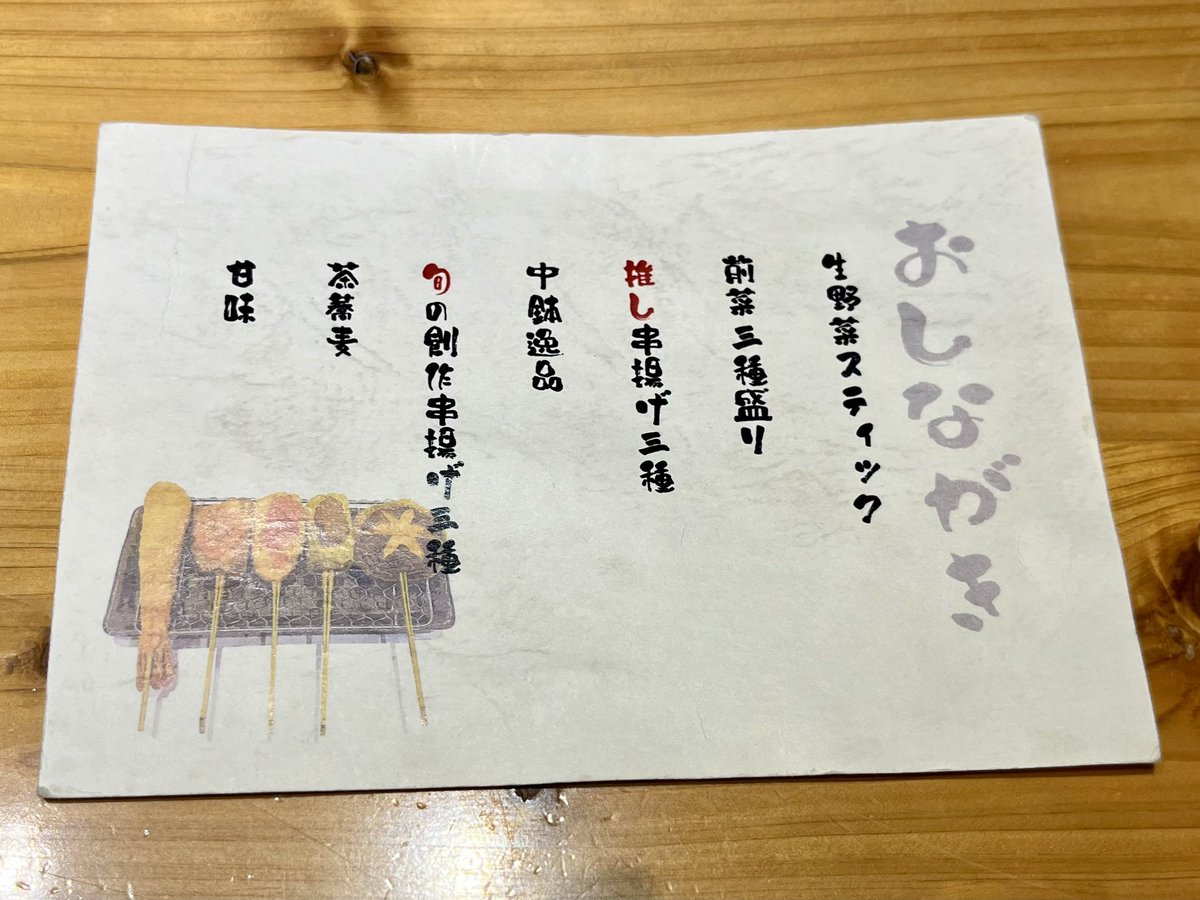 おしながき
生野菜スティック
前菜三種盛り
推し串揚げ三種
中鉢逸品
旬の創作串揚げ三種
茶蕎麦
甘味